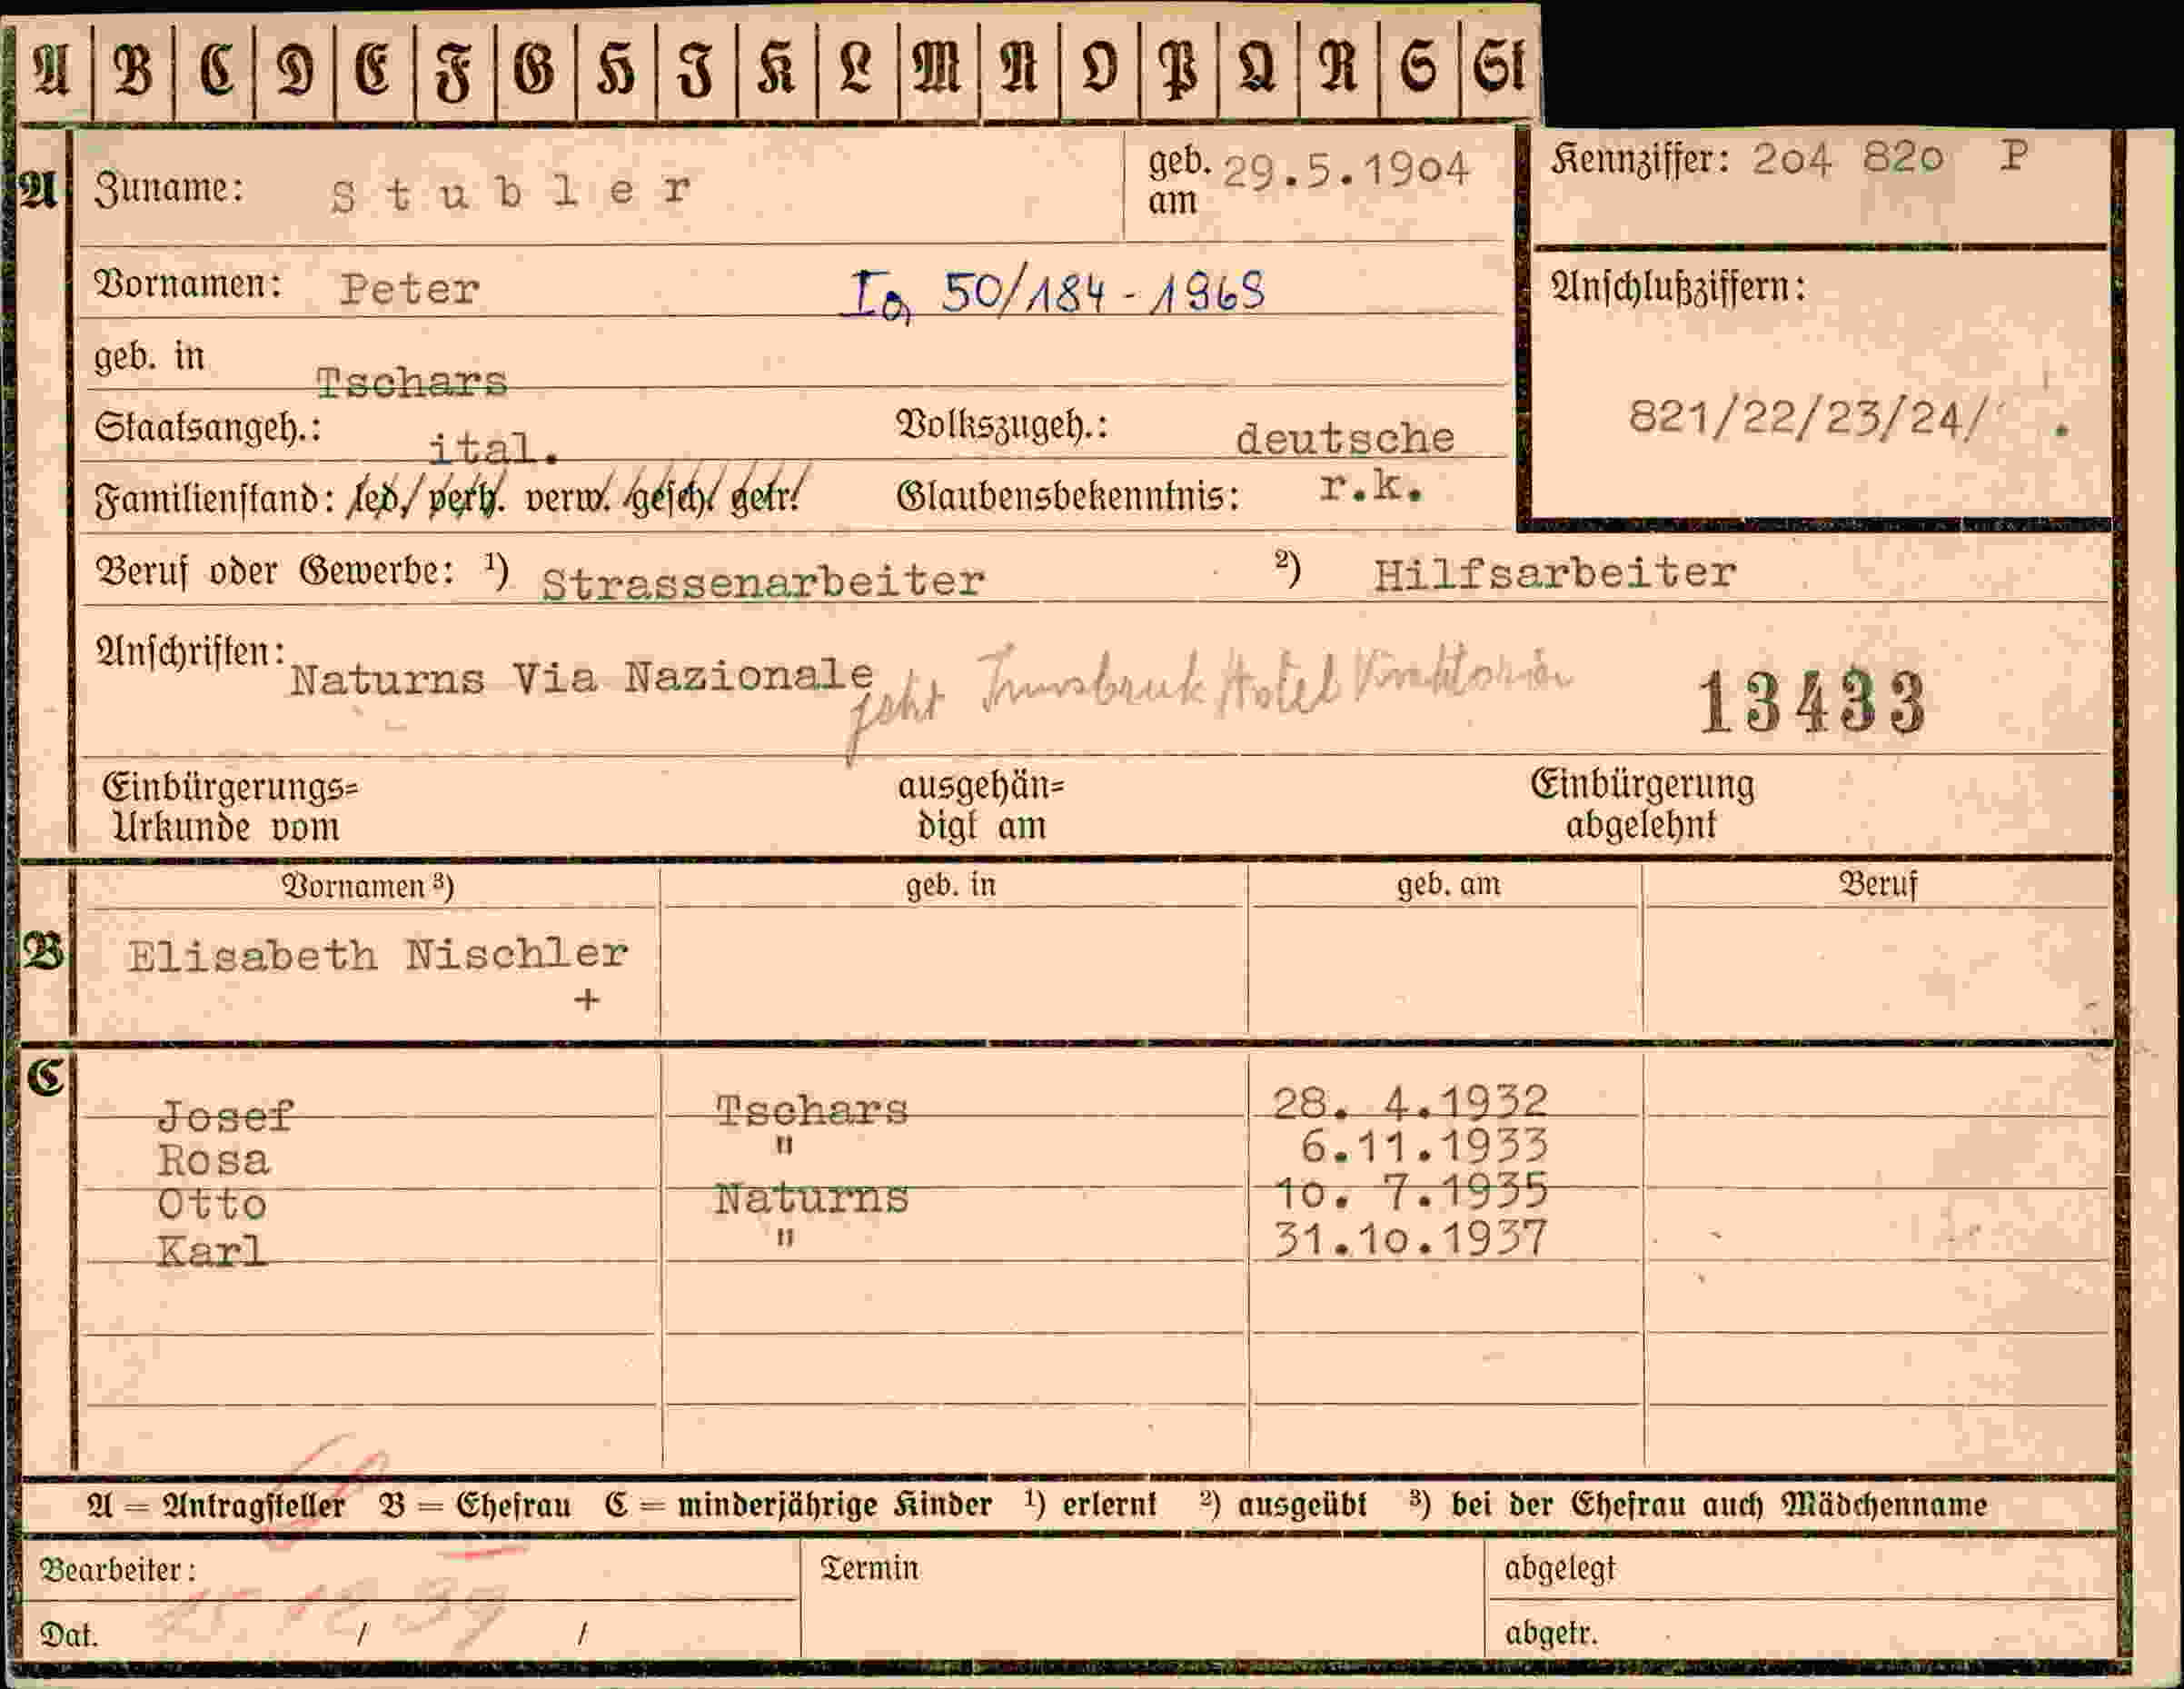 A B C D E F G H I K L M N O P Q R S St
A Zuname: S t u b l e r geb. am 29.5.19o4 Kennziffer: 2o4 82o P
Vornamen: Peter Ia 50/184 - 1969 Anschlußziffern:
geb. in Tschars
821/22/23/24/
Staatsangeh.: ital. Volkszugeh.: deutsche
Familienstand: led. verh. verw. gesch. getr. Glaubensbekenntnis: r.k.
Beruf oder Gewerbe: ¹) Strassenarbeiter ²) Hilfsarbeiter
Anschriften: Naturns Via Nazionale jetzt Innsbruk Hotel 13433
Einbürgerungs= ausgehän= Einbürgerung
Urkunde vom digt am abgelehnt
Vornamen ³) geb. in geb. am Beruf
B Elisabeth Nischler
+
C
Josef Tschars 28. 4.1932
Rosa " 6.11.1933
Otto Naturns 1o. 7.1935
Karl " 31.1o.1937
A = Antragsteller B = Ehefrau C = minderjährige Kinder ¹) erlernt ²) ausgeübt ³) bei der Ehefrau auch Mädchenname
Bearbeiter: Termin abgelegt
Dat. / / abgetr.